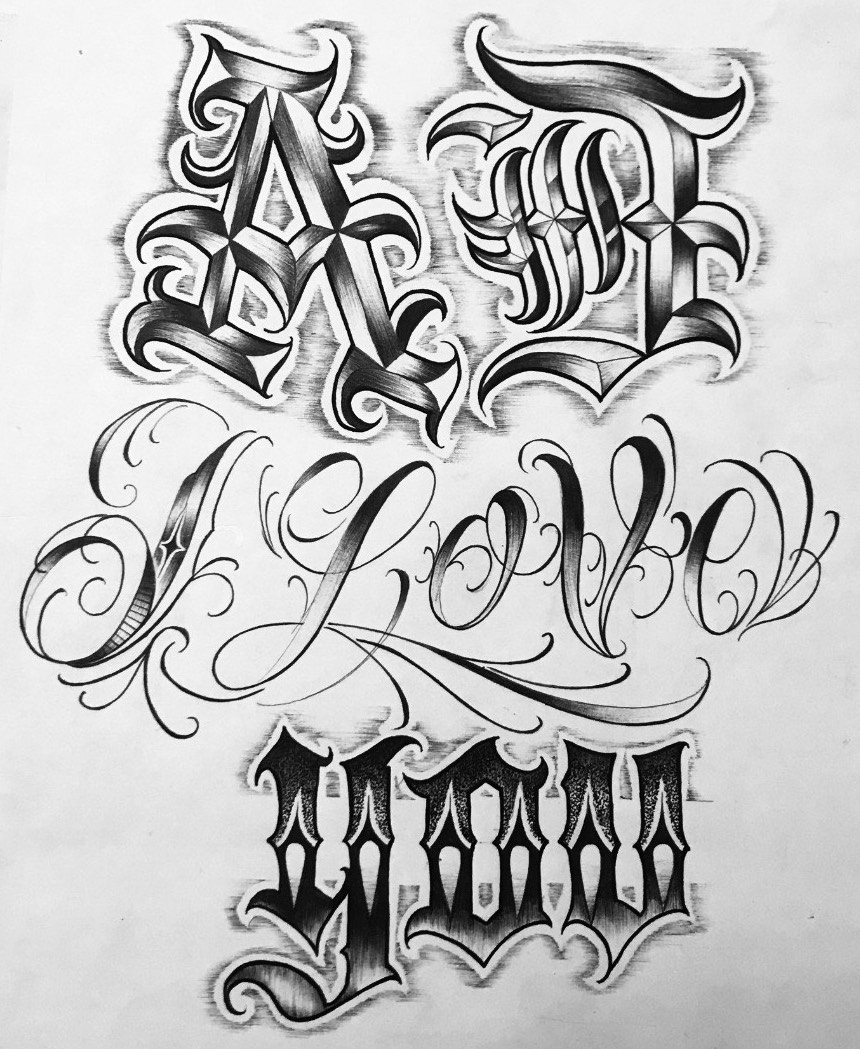 A D
I Love
you